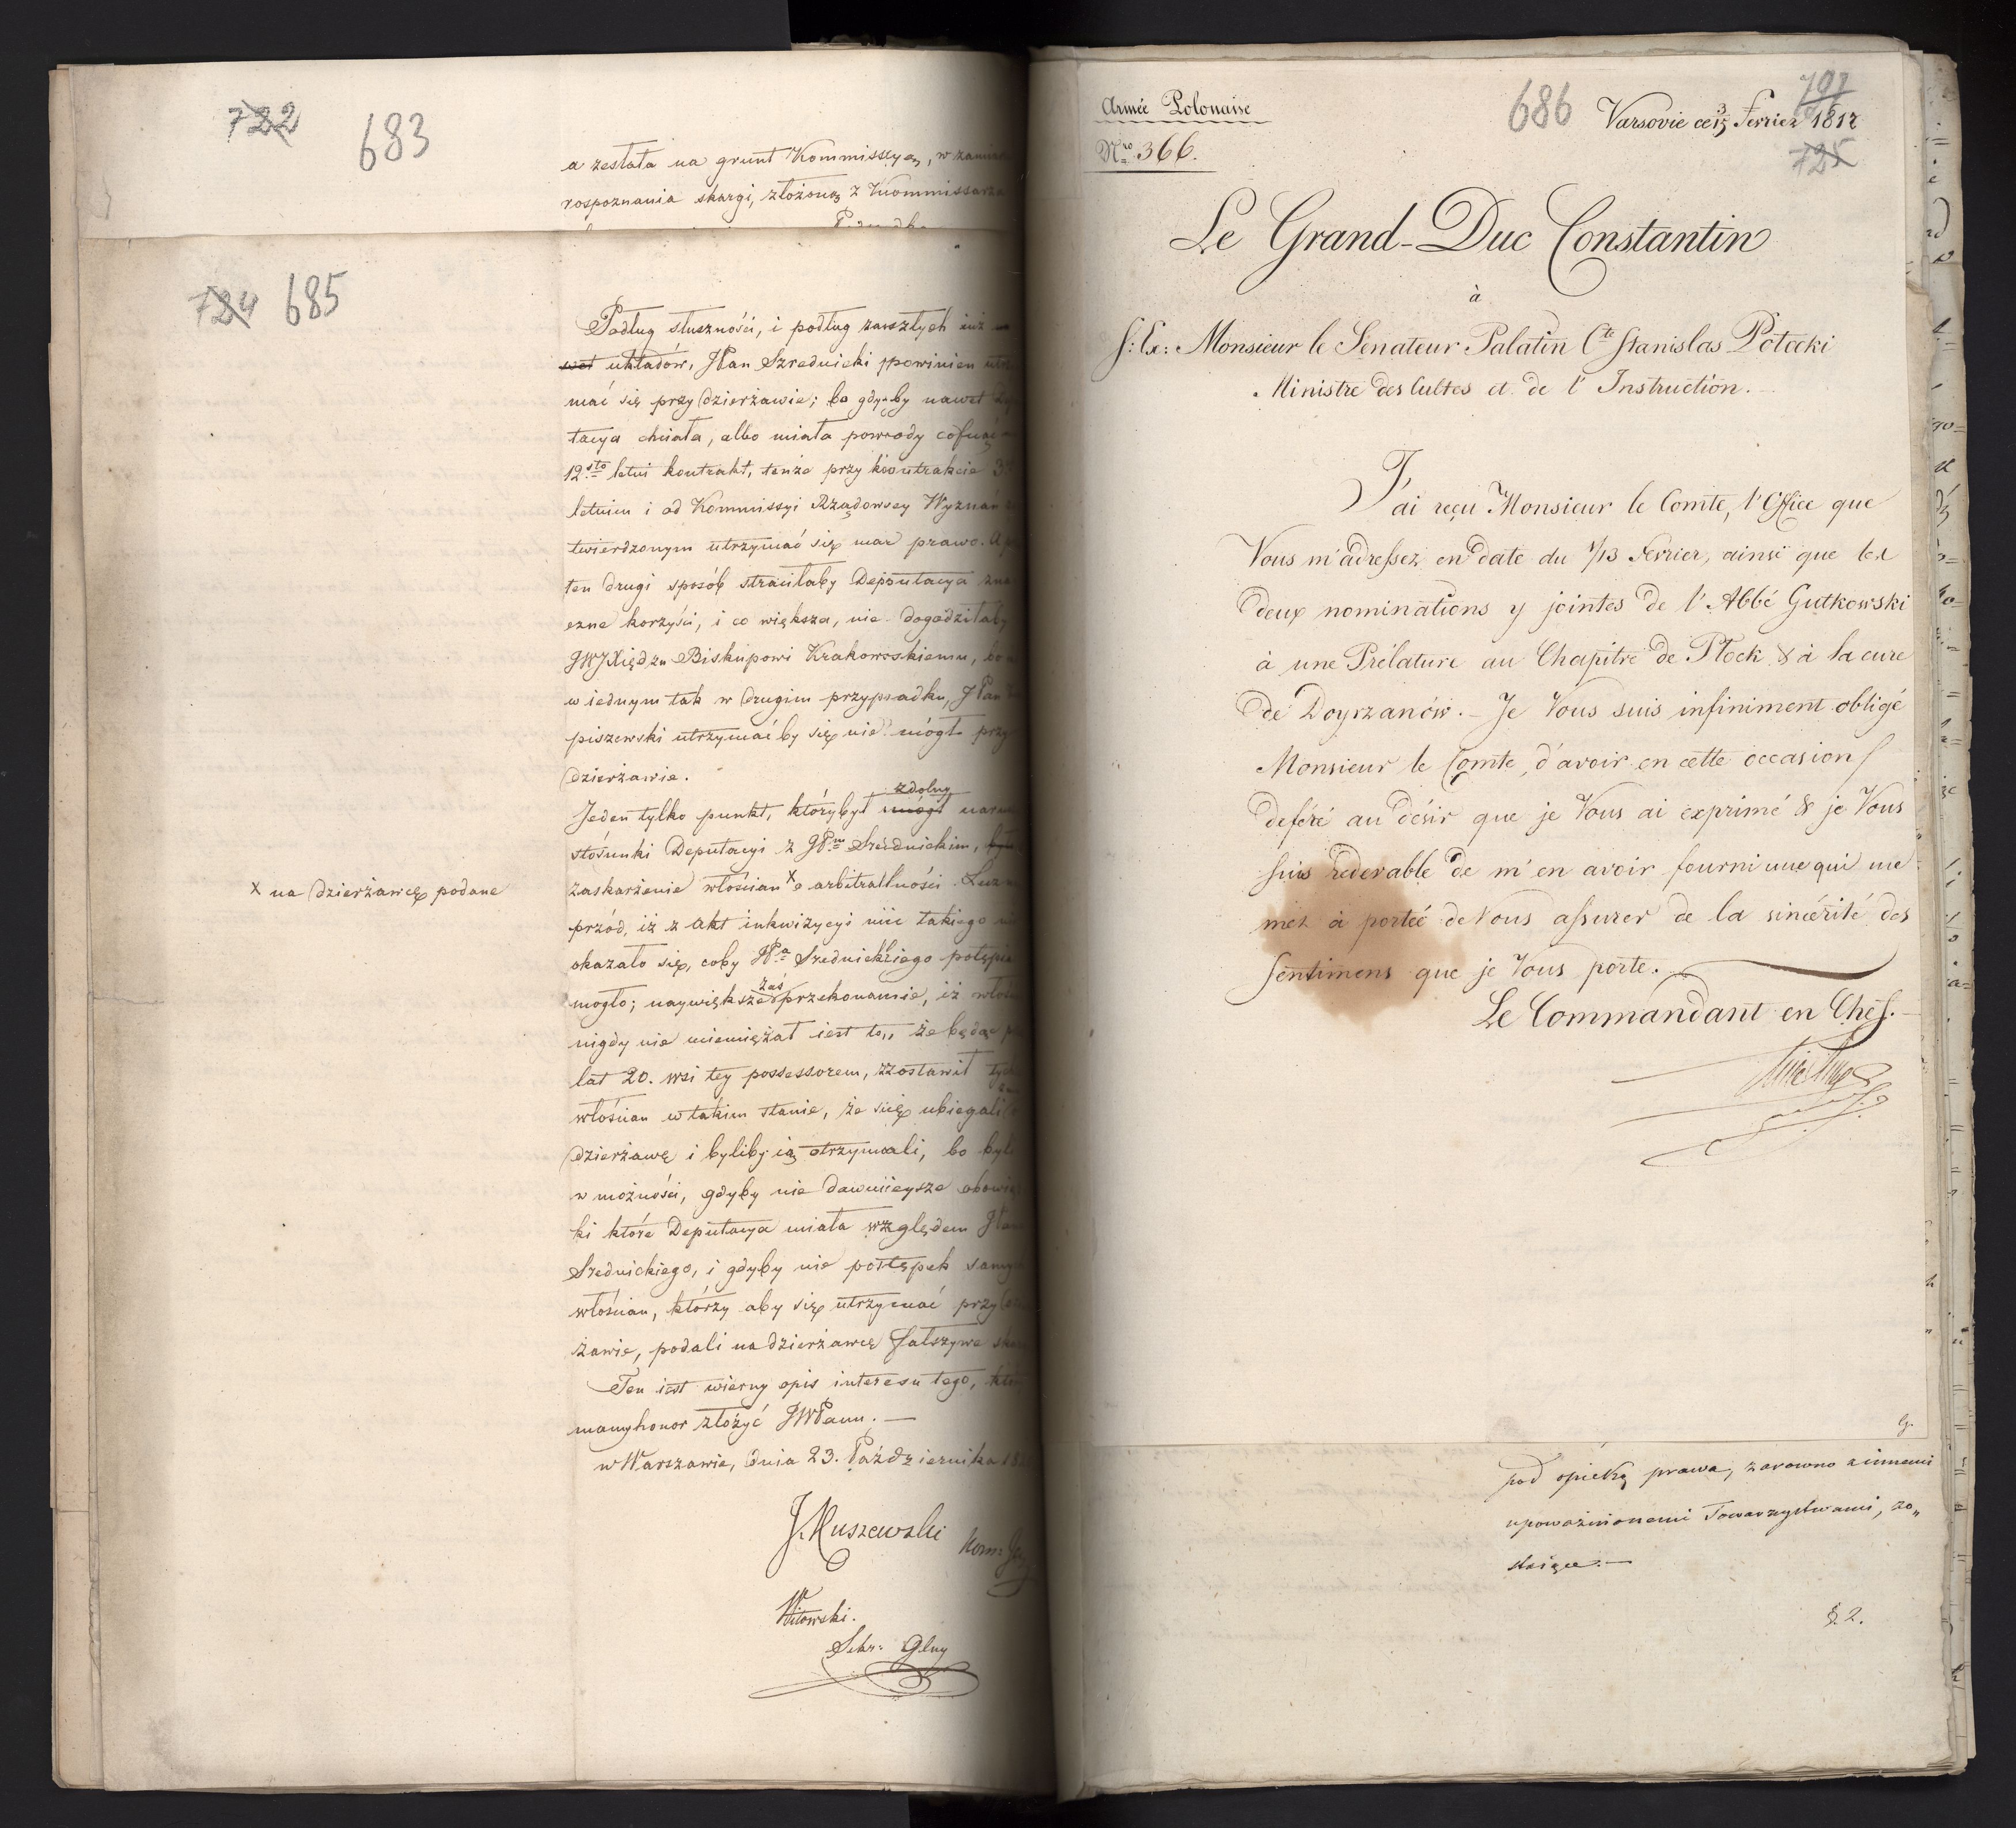 722
683
a zesłała na grunt Kommissyą, w
rospoznania skargi, złożoną z Kommissarza
724 685
Podług słuszności, i podług zaszłych iuż
wet układów, JPan Szrednicki powinien
mać się przy dzierżawie; bo gdyby nawet
tacya chciała, albo miała powody cofnąć
12sto letni kontrakt, tenże przy kontrakcie 3
letnim i od Kommissyi Rządowey Wyznań
twierdzonym utrzymać się ma prawo.
ten drugi sposób straciłaby Deputacya
czne korzyści, i co większa, nie dogodziłaby
JWJXiędzu Biskupowi Krakowskiemu,
w iednym tak w drugim przypadku, JPan
piszewski utrzymać by się nie mógł przy
dzierżawie.
zdolny
Jeden tylko punkt, któryby mógł
stósunki Deputacyi z JPm Srednickim,
x na dzierżawcę podane
zaskarżenie włościan x o arbitralności.
przód, iż z akt inkwizycyi nic takiego
okazało się, coby JPa Srednickiego
zaś
mogło; naywiększe przekonanie, iż
nigdy nie uciemiężał iest to, że będąc
lat 20. wsi tey possessorem, zostawił
włościan w takim stanie, że się ubiegali
dzierżawę i byliby ią otrzymali, bo byli
w możności, gdyby nie dawnieysze
ki które Deputacya miała względem
Srednickiego, i gdyby nie postępek
włościan, którzy aby się utrzymać przy
żawie, podali na dzierżawcę fałszywe
Ten iest wierny opis interesu tego,
mamy honor złożyć JWPanu. —
w Warszawie, dnia 23. Października
J. Kuszewski
Witowski.
Sekr: Glny
Armée Polonaise
Nro 366.
686
Varsovie ce 3/15 Fevrier 1817
725
Le Grand-Duc Constantin
à
S: Ex: Monsieur le Senateur Palatin Cte Stanislas Potocki
Ministre des Cultes et de l'Instruction.
J'ai reçu Monsieur le Comte, l'Office que
Vous m'adressez en date du 1/13 Fevrier, ainsi que les
deux nominations y jointes de l'Abbé Gutkowski
à une Prélature au Chapitre de Plock & à la cure
de Doyrzanów. – Je Vous suis infiniment obligé
Monsieur le Comte, d'avoir en cette occasion
deféré au désir que je Vous ai exprimé & je Vous
suis redevable de m'en avoir fourni une qui me
met à porteé de Vous assurer de la sincérité des
sentimens que je Vous porte.
Le Commandant en Chef.
pod opieką prawa, zarowno z innemi
upoważnionemi Towarzystwami, zo„
staiące. —
§. 2.